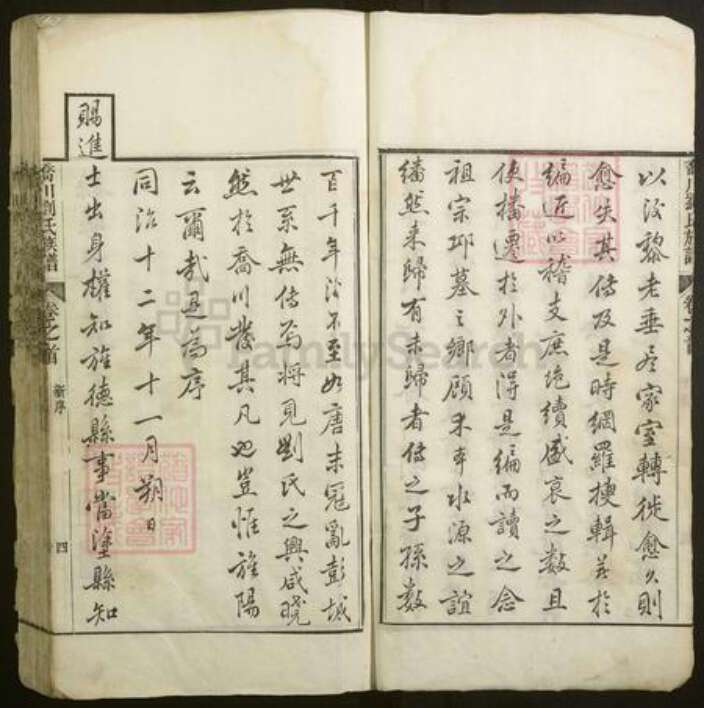 以後黎老垂盡家室轉徙愈久則
愈失其傳及是時網羅摭輯并於
編近以稽支庶绝續盛衰之数且
使播遷於外者得是编而讀之念
祖宗邱墓之鄉顧木本水源之誼
幡然来歸有未歸者傳之子孫数
百千年後不至如唐末寇亂彭城
世系無傳焉将見劉氏之興咸曉
然於喬川發其凡也豈惟旌陽
云爾哉是為序
同治十二年十一月朔日
賜進士出身權知旌德縣事當塗縣知
喬川劉氏族譜
卷之首
新序
四
FamilySearch